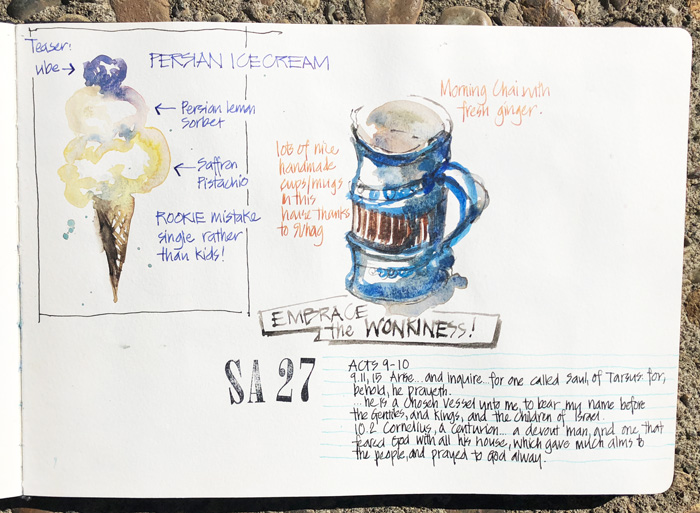 Teaser:
ube →
PERSIAN ICE CREAM
← Persian lemon
sorbet
← Saffron
Pistachio
ROOKIE mistake
single rather
than kids!
Morning Chai with
fresh ginger.
lots of nice
handmade
cups/mugs
in this
house thanks
to
EMBRACE
the WONKINESS!
SA 27
ACTS 9-10
9.11, 15 Arise... and inquire for one called Saul, of Tarsus: for,
behold, he prayeth.
... he is a chosen vessel unto me, to bear my name before
the Gentiles, and kings, and the children of Israel.
10.2 Cornelius, a centurion... a devout man, and one that
feared God with all his house, which gave much alms to
the people, and prayed to God alway.